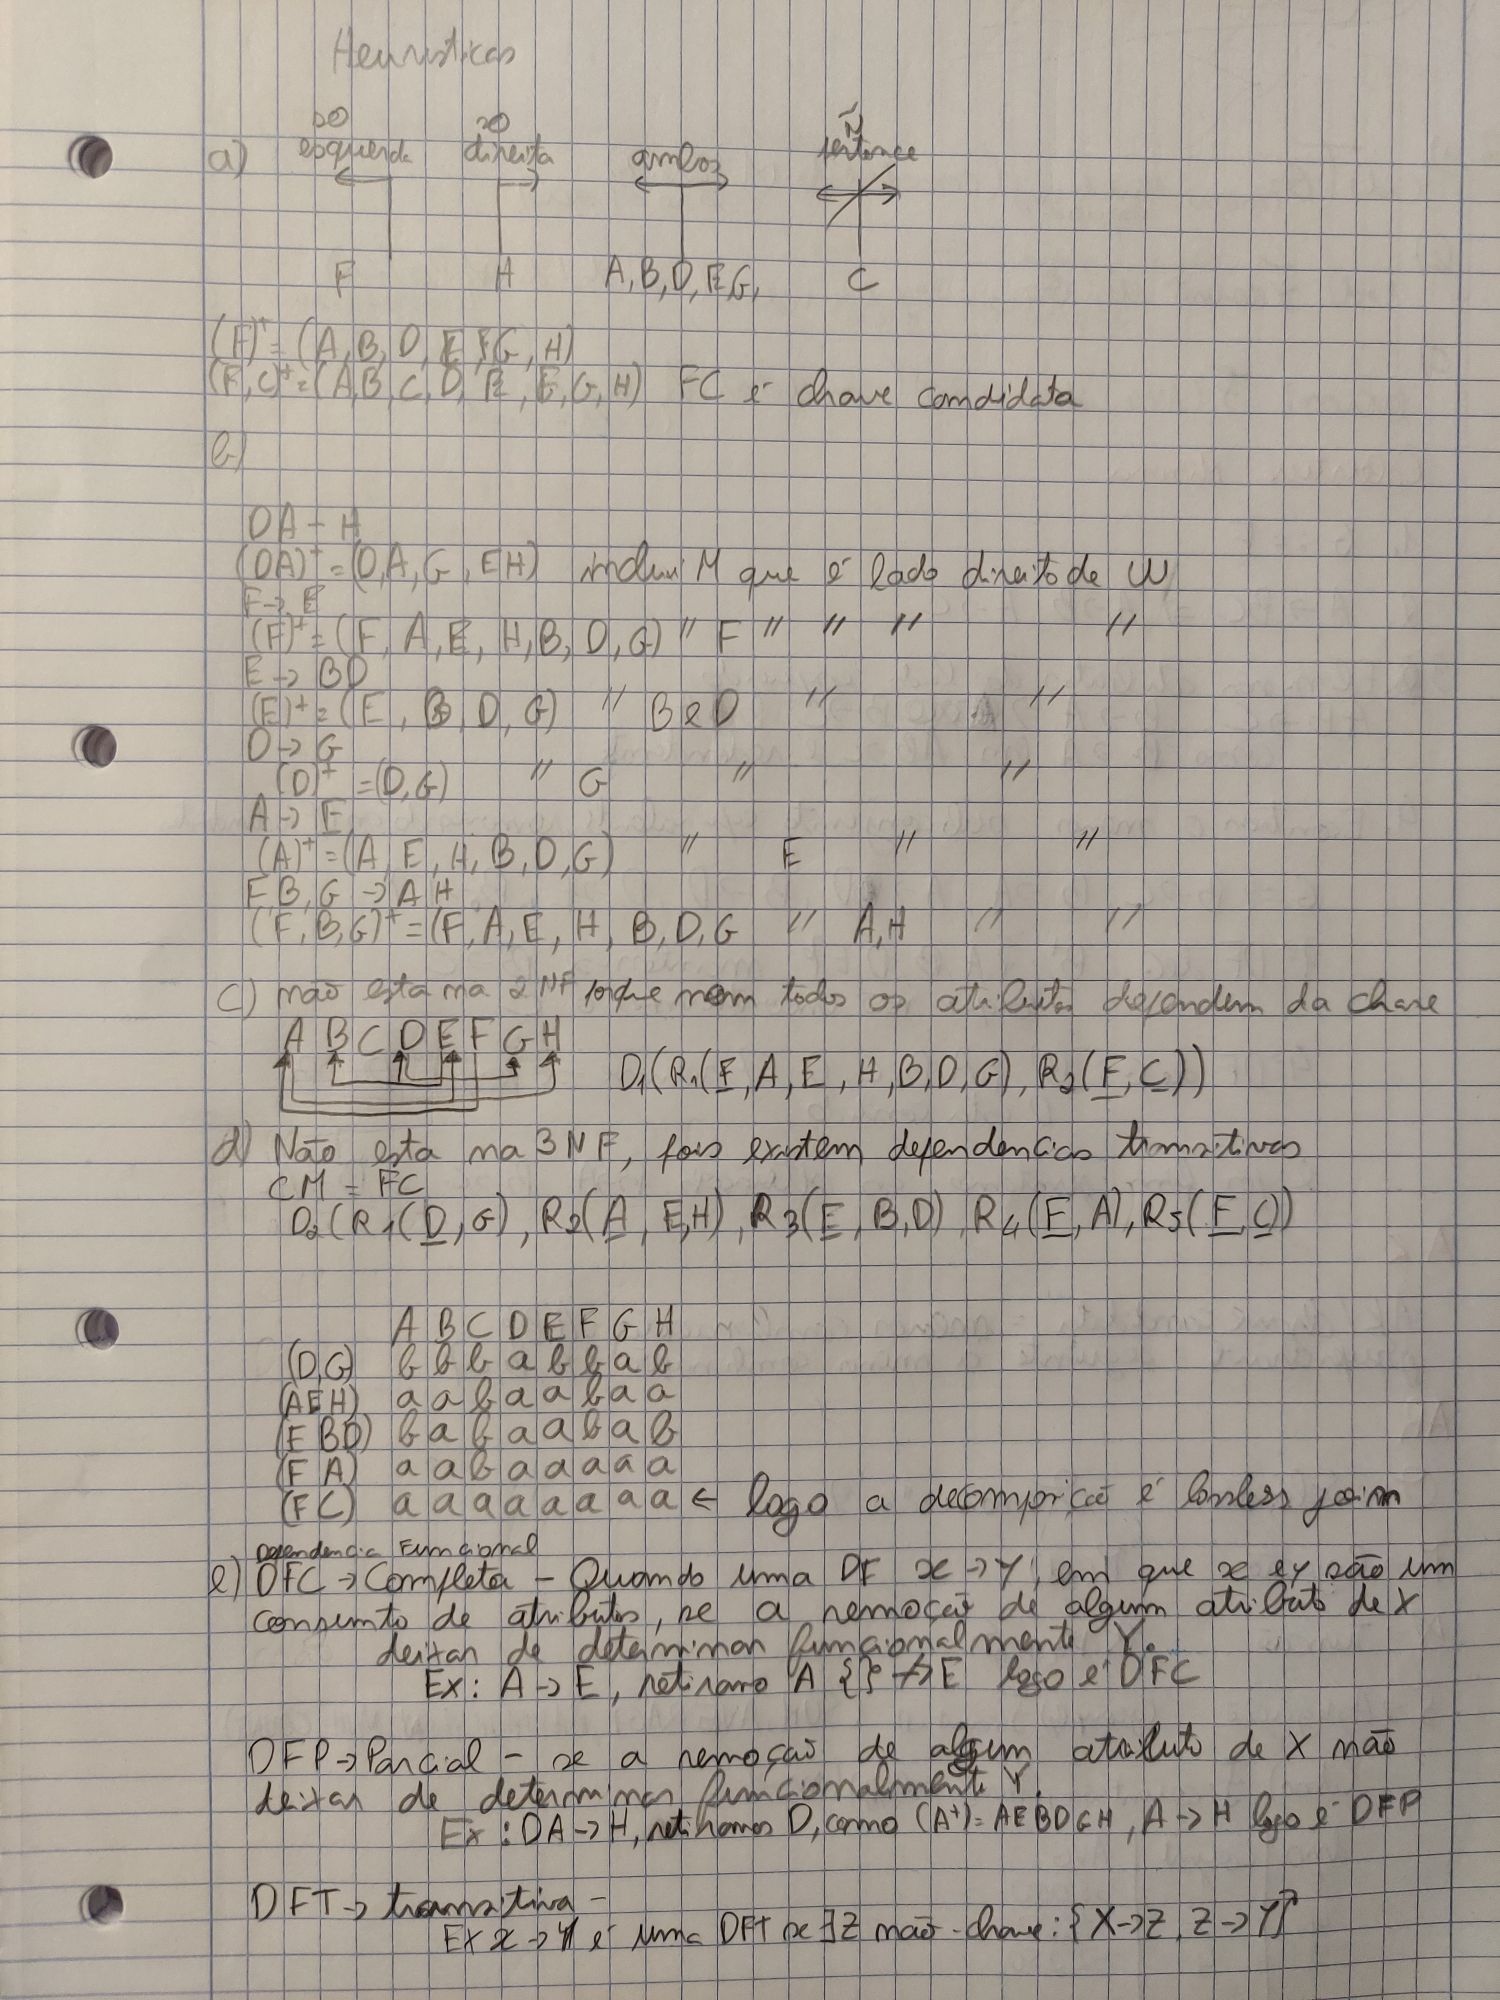 Heurísticas
a) só esquerda só direita ambos Ñ pertence
F H A, B, D, E, G, C
(F)⁺ = (A, B, D, E, F, G, H)
(F, C)⁺ = (A, B, C, D, E, F, G, H) FC é chave candidata
b)
DA → H
(DA)⁺ = (D, A, G, E H) inclui H que é lado direito de W
F → E
(F)⁺ = (F, A, E, H, B, D, G) " F " " " "
E → BD
(E)⁺ = (E, B, D, G) " B e D " "
D → G
(D)⁺ = (D, G) " G " "
A → E
(A)⁺ = (A, E, H, B, D, G) " E " "
F, B, G → A H
(F, B, G)⁺ = (F, A, E, H, B, D, G " A, H " "
c) não esta na 2NF porque nem todos os atributos dependem da chave
A B C D E F G H
D₁(R₁(F, A, E, H, B, D, G), R₂(F, C))
d) Não esta na 3NF, pois existem dependencias transitivas
CM = FC
D₂(R₁(D, G), R₂(A, E, H), R₃(E, B, D), R₄(F, A), R₅(F, C))
A B C D E F G H
(D, G) b b b a b b a b
(A E H) a a b a a b a a
(E B D) b a b a a b a b
(F A) a a b a a a a a
(F C) a a a a a a a a ← logo a decomposicão é lossless join
Dependencia Funcional
e) DFC → Completa - Quando uma DF x → Y, em que x e y são um
conjunto de atributos, se a remoção de algum atributo de X
deixar de determinar funcionalmente Y.
Ex: A → E, retiramo A {} ↛ E logo é DFC
DFP → Parcial - se a remoção de algum atributo de X não
deixar de determinar funcionalmente Y.
Ex: DA → H, retiramos D, como (A⁺) = AEBDGH, A → H logo é DFP
DFT → transitiva -
Ex x → y é uma DFT se ∃Z não-chave: {X → Z, Z → Y}